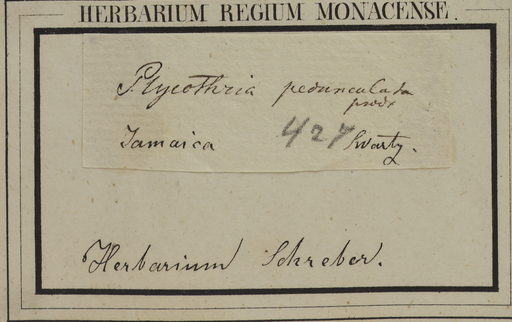 HERBARIUM REGIUM MONACENSE.
Psycothria pedunculata
prodr
Jamaica 427 Swartz.
Herbarium Schreber.